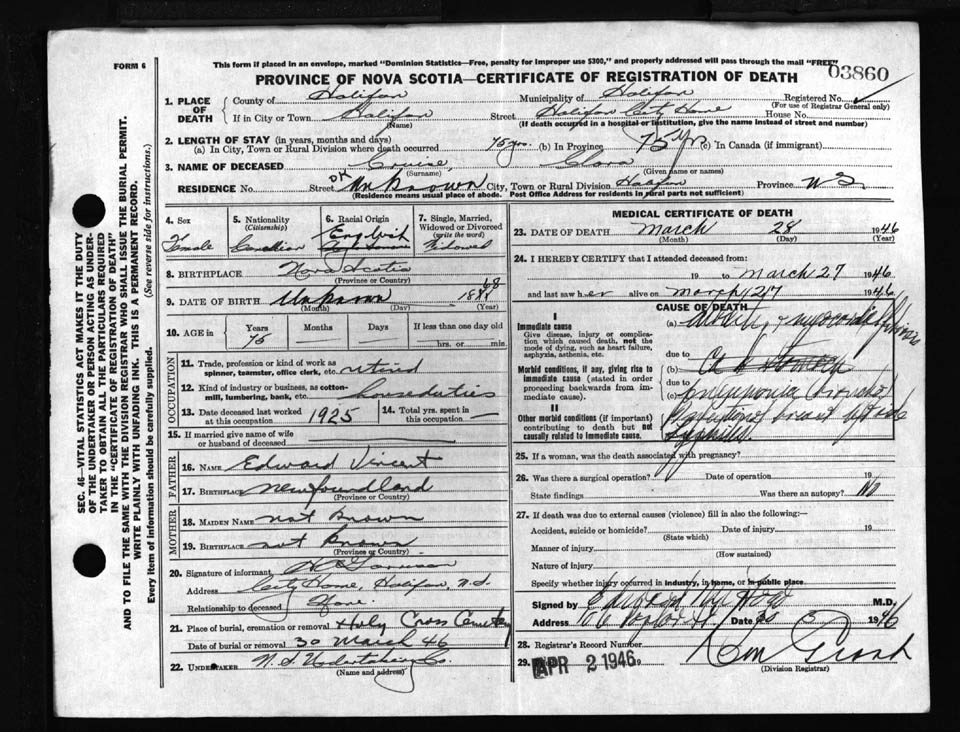 FORM 6
This form if placed in an envelope, marked "Dominion Statistics—Free, penalty for improper use $300," and properly addressed will pass through the mail "FREE"
03860
PROVINCE OF NOVA SCOTIA—CERTIFICATE OF REGISTRATION OF DEATH
1. PLACE OF DEATH
County of Halifax Municipality of Halifax Registered No.
(For use of Registrar General only)
If in City or Town Halifax Street Halifax City Home House No.
(Name) (If death occurred in a hospital or institution, give the name instead of street and number)
2. LENGTH OF STAY (in years, months and days)
(a) In City, Town or Rural Division where death occurred 75 yrs. (b) In Province 75 yr (c) In Canada (if immigrant)
3. NAME OF DECEASED Cruise Clara
(Surname) (Given name or names)
RESIDENCE No. Street Unknown City, Town or Rural Division Province N S.
(Residence means usual place of abode. Post Office Address for residents in rural parts not sufficient)
4. Sex Female
5. Nationality (Citizenship) Canadian
6. Racial Origin
7. Single, Married, Widowed or Divorced (write the word) Widowed
8. BIRTHPLACE Nova Scotia
(Province or Country)
9. DATE OF BIRTH Unknown 18 68
(Month) (Day) (Year)
10. AGE in Years Months Days If less than one day old
75 hrs. or min.
OCCUPATION
11. Trade, profession or kind of work as spinner, teamster, office clerk, etc. retired
12. Kind of industry or business, as cotton-mill, lumbering, bank, etc. houseduties
13. Date deceased last worked at this occupation 1925
14. Total yrs. spent in this occupation —
15. If married give name of wife or husband of deceased
FATHER
16. NAME Edward Vincent
17. BIRTHPLACE Newfoundland
(Province or Country)
MOTHER
18. MAIDEN NAME not known
19. BIRTHPLACE not known
(Province or Country)
20. Signature of informant
Address City Home, Halifax, N.S.
Relationship to deceased None.
21. Place of burial, cremation or removal Holy Cross Cemetery
Date of burial or removal 30 March 46
22. UNDERTAKER N. S. Undertaking Co.
(Name and address)
MEDICAL CERTIFICATE OF DEATH
23. DATE OF DEATH March 28 1946
(Month) (Day) (Year)
24. I HEREBY CERTIFY that I attended deceased from:
19 to March 27 1946
and last saw her alive on March 27 1946
CAUSE OF DEATH
I
Immediate cause
Give disease, injury or complication which caused death, not the mode of dying, such as heart failure, asphyxia, asthenia, etc.
(a)
due to
Morbid conditions, if any, giving rise to immediate cause (stated in order proceeding backwards from immediate cause).
(b)
due to
(c) pneumonia (broncho)
II
Other morbid conditions (if important) contributing to death but not causally related to immediate cause.
breast
syphilis
25. If a woman, was the death associated with pregnancy?
26. Was there a surgical operation? Date of operation 19
State findings Was there an autopsy? no
27. If death was due to external causes (violence) fill in also the following:—
Accident, suicide or homicide? Date of injury 19
(State which)
Manner of injury
(How sustained)
Nature of injury
Specify whether injury occurred in industry, in home, or in public place
Signed by M.D.
Address Date 30 3 1946
28. Registrar's Record Number
29. APR 2 1946
(Division Registrar)
SEC. 46—VITAL STATISTICS ACT MAKES IT THE DUTY
OF THE UNDERTAKER OR PERSON ACTING AS UNDER-
TAKER TO OBTAIN ALL THE PARTICULARS REQUIRED
IN THE "CERTIFICATE OF REGISTRATION OF DEATH"
AND TO FILE THE SAME WITH THE DIVISION REGISTRAR WHO SHALL ISSUE THE BURIAL PERMIT.
WRITE PLAINLY WITH UNFADING INK. THIS IS A PERMANENT RECORD.
Every item of information should be carefully supplied. (See reverse side for instructions.)